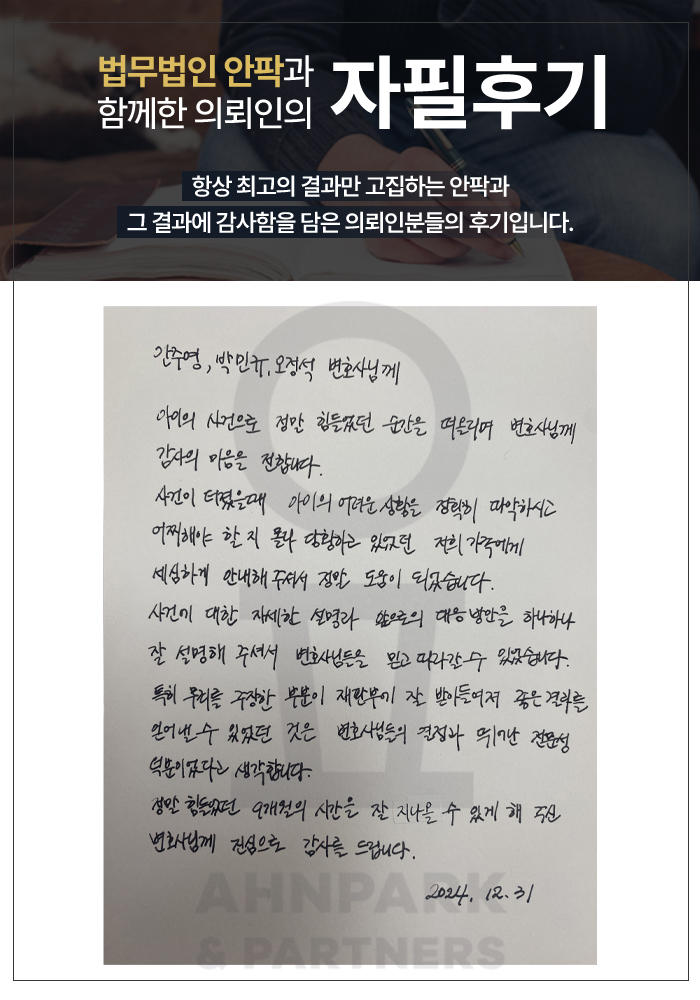 법무법인 안팍과
함께한 의뢰인의
자필후기
항상 최고의 결과만 고집하는 안팍과
그 결과에 감사함을 담은 의뢰인분들의 후기입니다.
간주영, 박민규, 오정석 변호사님께
아이의 사건으로 정말 힘들었던 순간을 떠올리며 변호사님께
감사의 마음을 전합니다.
사건이 터졌을때 아이의 어려운 상황을 정확히 파악하시고
어찌해야 할 지 몰라 당황하고 있었던 저희 가족에게
세심하게 안내해 주셔서 정말 도움이 되었습니다.
사건에 대한 자세한 설명과 앞으로의 대응 방안을 하나하나
잘 설명해 주셔서 변호사님들을 믿고 따라갈 수 있었습니다.
특히 무죄를 주장한 부분이 재판부에 잘 받아들여져 좋은 결과를
얻어낼 수 있었던 것은 변호사님들의 열정과 뛰어난 전문성
덕분이었다고 생각합니다.
정말 힘들었던 9개월의 시간을 잘 지나올 수 있게 해 주신
변호사님께 진심으로 감사를 드립니다.
2024. 12. 31
AHNPARK
& PARTNERS